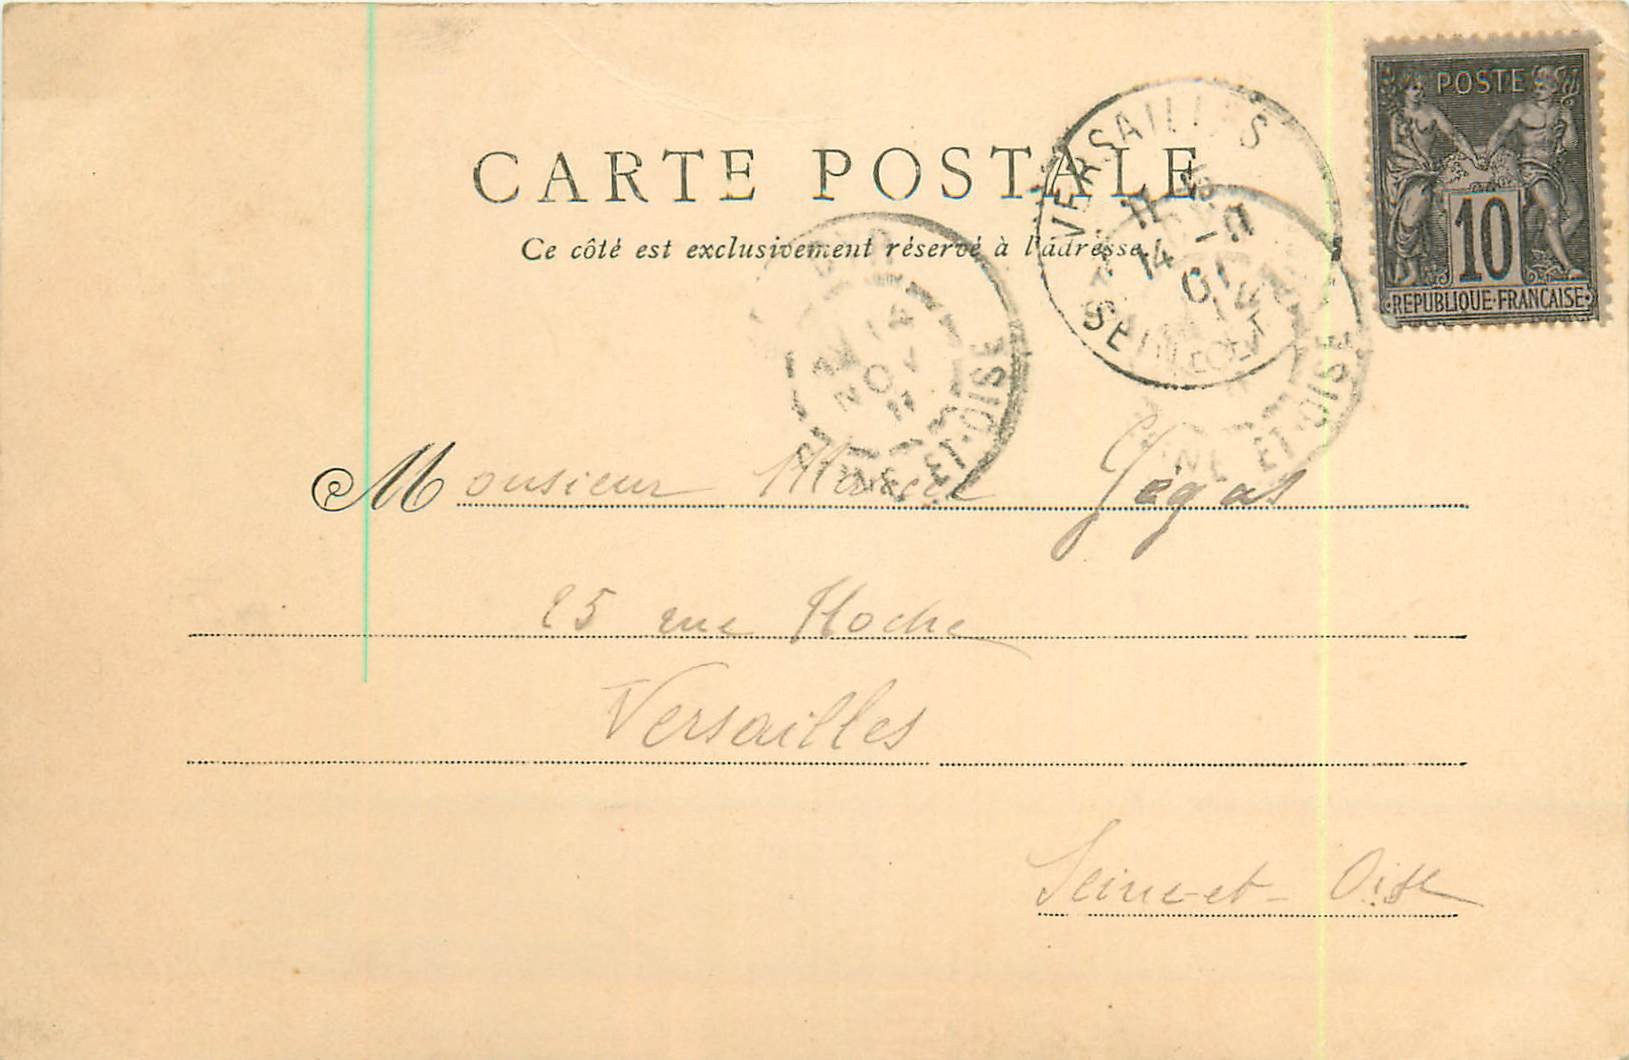 POSTE
10
REPUBLIQUE·FRANCAISE
CARTE POSTALE
Ce côté est exclusivement réservé à l'adresse
VERSAILLES
14 -11
01
SEINE-ET-OISE
14
NOV
ET-OISE
Monsieur Marcel Jégat
25 rue Hoche
Versailles
Seine-et-Oise